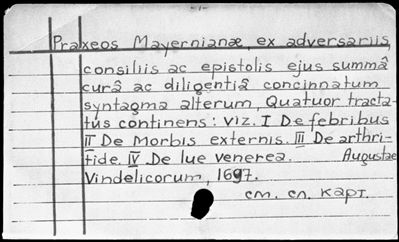 -1-
Praxeos Mayernianæ, ex adversariis,
consiliis ac epistolis ejus summâ
curâ ac diligentiâ concinnatum
syntagma alterum, Quatuor tracta-
tus continens: viz. I De febribus
II De Morbis externis. III De arthri-
tide. IV De lue venerea. Augustae
Vindelicorum, 1697.
см. сл. карт.